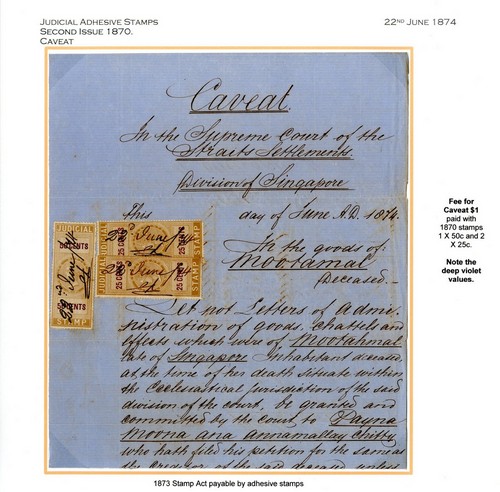 JUDICIAL ADHESIVE STAMPS
SECOND ISSUE 1870.
CAVEAT
22ND JUNE 1874
Caveat.
In the Supreme Court of the
Straits Settlements.
Division of Singapore
This day of June A.D. 1874.
In the goods of
Mootamal
Deceased.
Let not Letters of Admi-
nistration of goods, chattels and
effects which were of Mootahmal
late of Singapore Inhabitant deceased
at the time of his death situate within
the Ecclesiastical jurisdiction of the said
division of the court, be granted and
committed by the court to Payna
Moona ana annamallay Chitty
who hath filed his petition for the same as
the creditor of the said deceased unless
JUDICIAL
50 CENTS
22nd June/74
50 CENTS
STAMP
JUDICIAL
25 CENTS
22nd June/74
25 CENTS
STAMP
JUDICIAL
25 CENTS
22nd June/74
25 CENTS
STAMP
Fee for
Caveat $1
paid with
1870 stamps
1 X 50c and 2
X 25c.
Note the
deep violet
values.
1873 Stamp Act payable by adhesive stamps